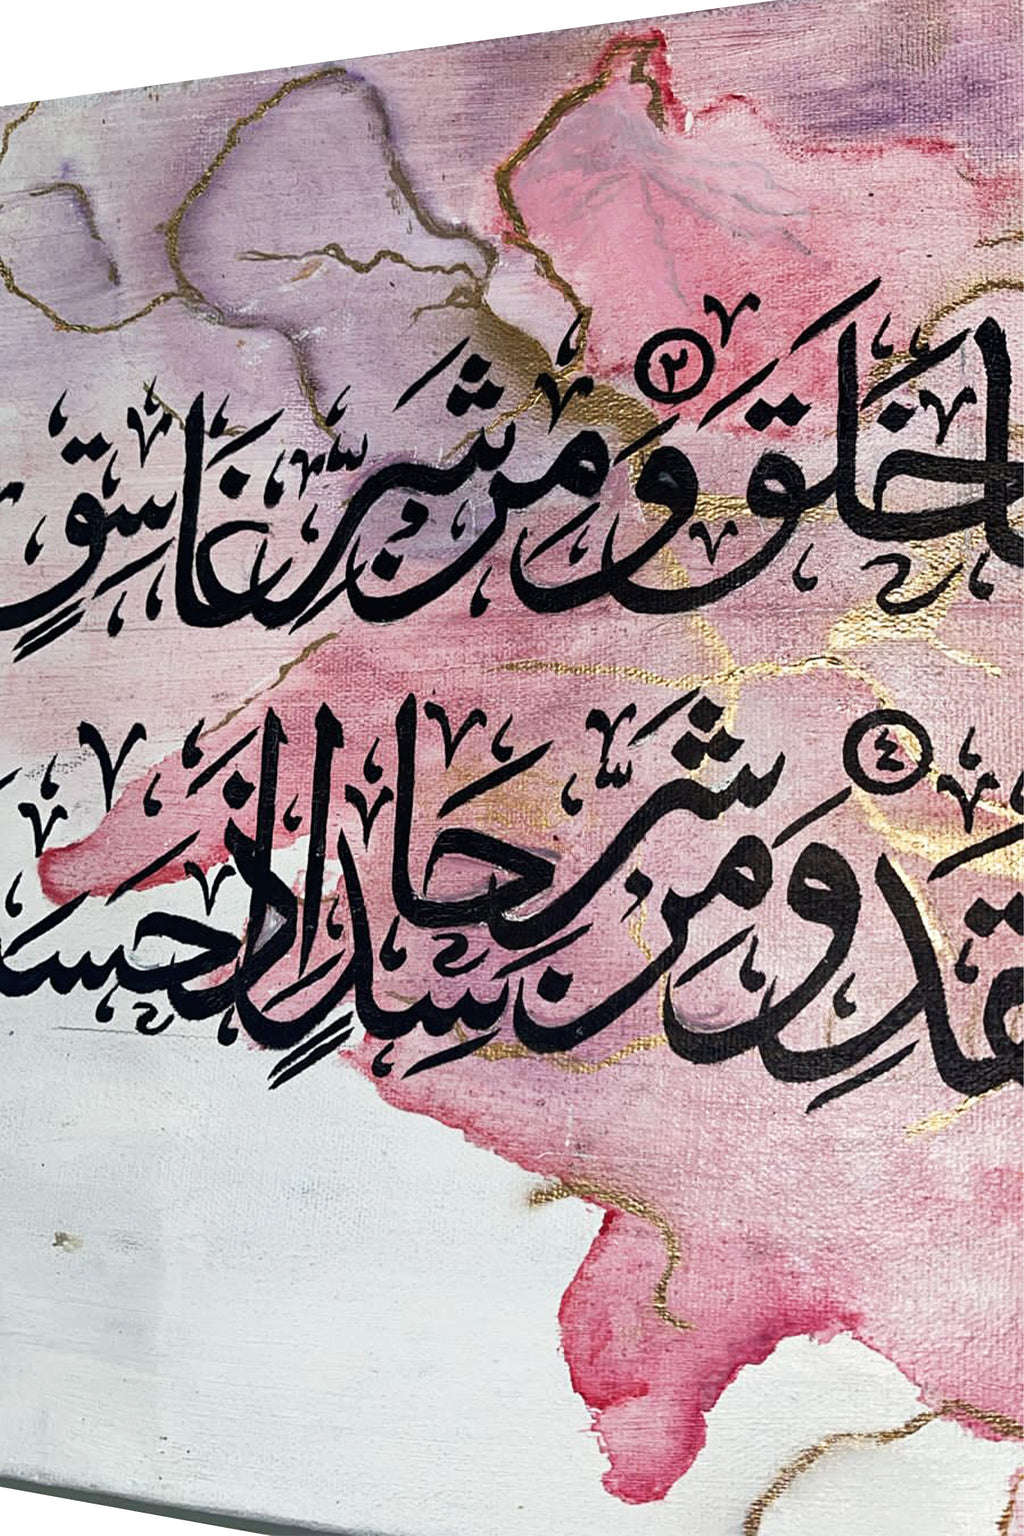 خَلَقَ ٢ وَمِنْ شَرِّ غَاسِقٍ
عُقَدِ ٤ وَمِنْ شَرِّ حَاسِدٍ إِذَا حَسَ